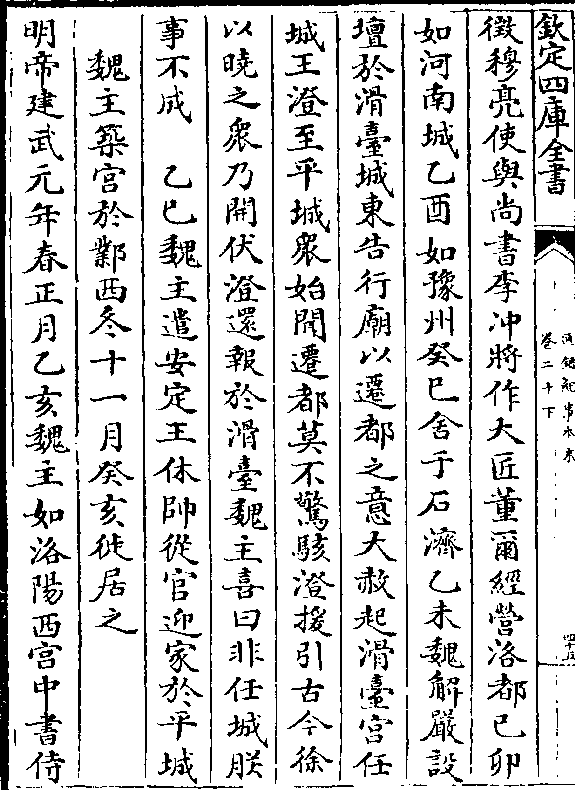 欽定四庫全書
通鑑紀事本末
卷二十下
徵穆亮使與尚書李冲將作大匠董爾經營洛都已卯
如河南城乙酉如豫州癸巳舍于石濟乙未魏解嚴設
壇於滑臺城東告行廟以遷都之意大赦起滑臺宫任
城王澄至平城衆始聞遷都莫不驚駭澄援引古今徐
以曉之衆乃開伏澄還報於滑臺魏主喜曰非任城朕
事不成　乙巳魏主遣安定王休帥從官迎家於平城
魏主築宫於鄴西冬十一月癸亥徙居之
明帝建武元年春正月乙亥魏主如洛陽西宫中書侍